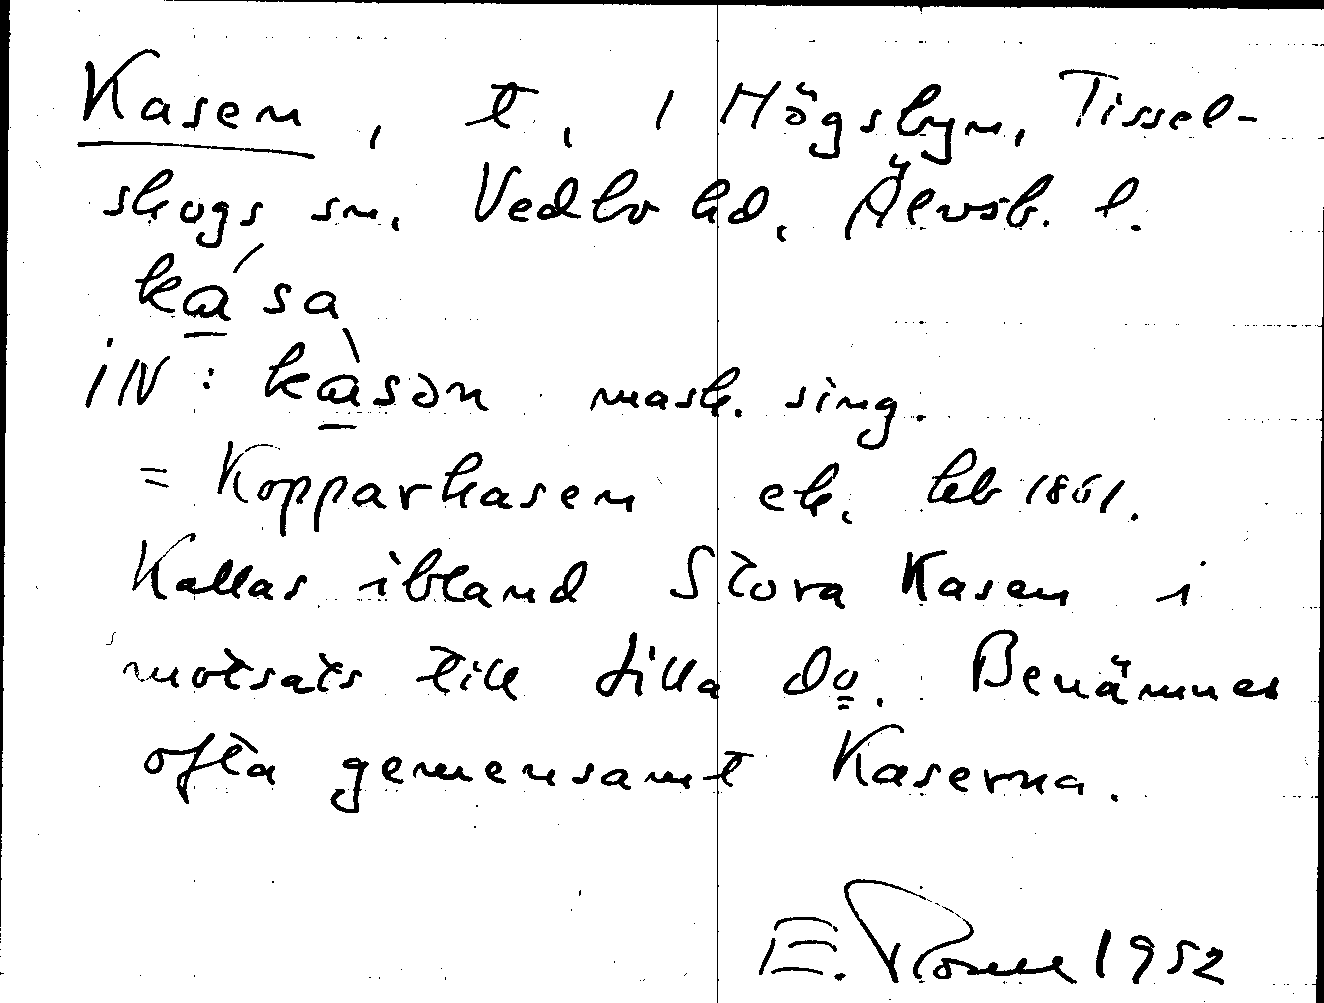 Kasen, t, i Högsbyn, Tissel-
skogs sn. Vedbo hd, Älvsb. l.
ká̱sa
iN: kà̱sən mask. sing.
= Kopparkasen ek. hkb 1861.
Kallas ibland Stora Kasen i
motsats till Lilla Do̳. Benämnes
ofta gemensamt Kaserna.
E. 1952